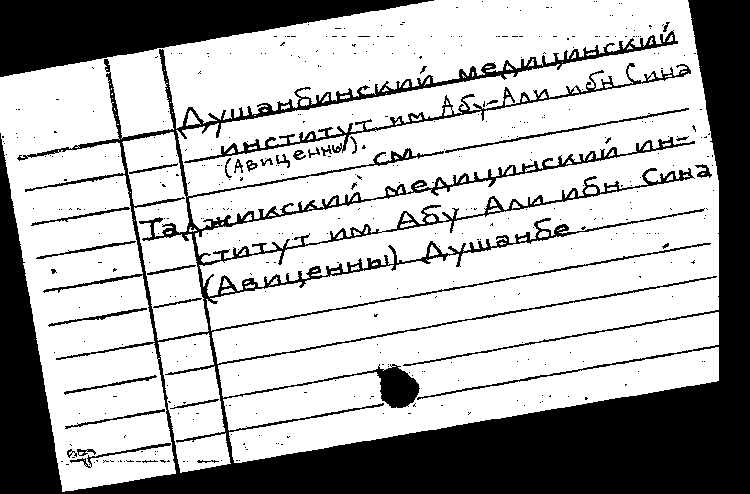 Душанбинский медицинский
институт им. Абу-Али ибн Сина
(Авиценны).
см.
Таджикский медицинский ин-
ститут им. Абу Али ибн Сина
(Авиценны). Душанбе.